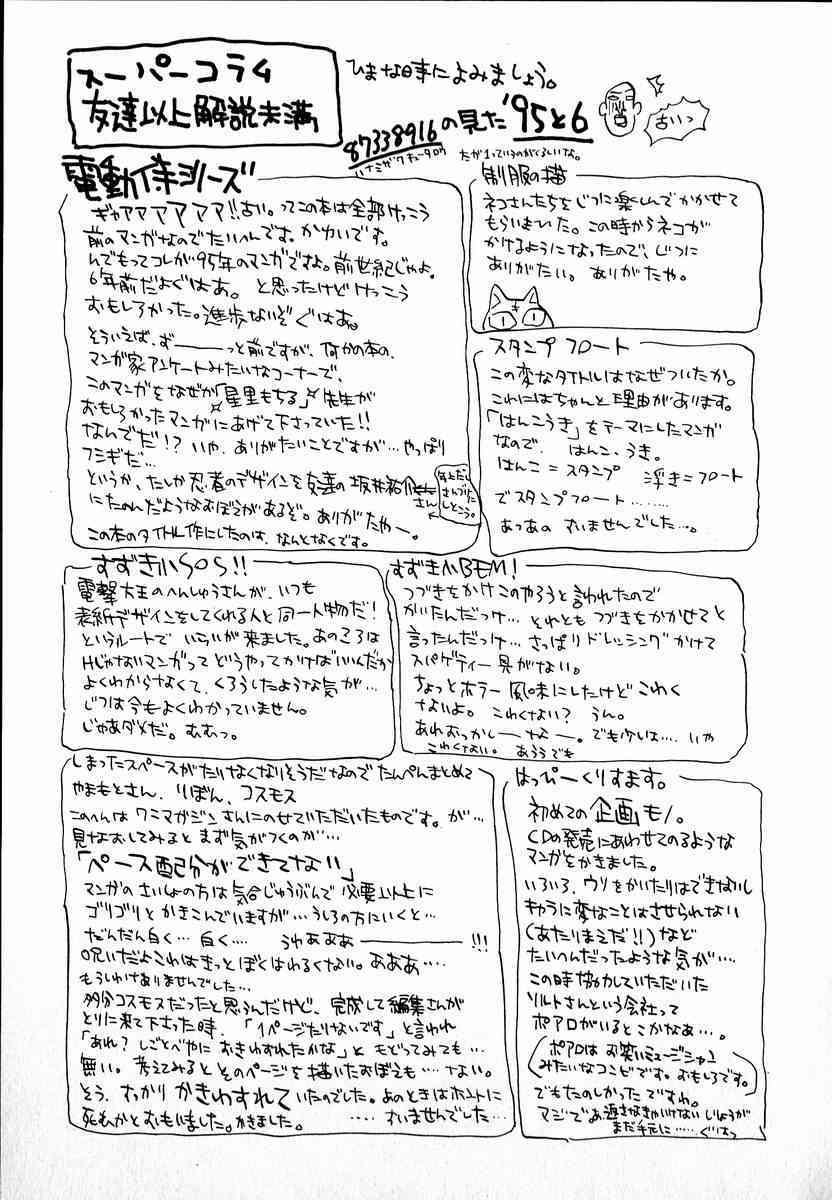 スーパーコラム
友達以上解説未満
ひまな時によみましょう。
87338916の見た'95と6
ハナミザワキュータロウ
たが1っていうのがくるしいな。
古いっ
電動侍シリーズ
ギャアアアアアア!!古い。ってこの本は全部けっこう
前のマンガなのでたいへんです。かわいです。
んでもってコレが95年のマンガですよ。前世紀じゃよ。
6年前だよぐはあ。と思ったけどけっこう
おもしろかった。進歩ないぞぐはあ。
そういえば、ずーーーっと前ですが、何かの本の、
マンガ家アンケートみたいなコーナーで、
このマンガをなぜか「星里もちる」先生が
おもしろかったマンガにあげて下さっていた!!
なんでだ!?いや、ありがたいことですが…やっぱり
フシギだ…
というか、たしか忍者のデザインを友達の坂井祐介さん
にたのんだようなおぼえがあるぞ。ありがたやー。
この本のタイトル作にしたのは、なんとなくです。
年上だし
さんづけに
しとこう。
制服の猫
ネコさんたちをじつに楽しんでかかせて
もらいました。この時からネコが
かけるようになったので、じつに
ありがたい。ありがたや。
スタンプフロート
この変なタイトルはなぜついたか。
これにはちゃんと理由があります。
「はんこうき」をテーマにしたマンガ
なので、はんこ、うき。
はんこ=スタンプ 浮き=フロート
でスタンプフロート………
あっあの すいませんでした…。
すずき小SOS!!
電撃大王のへんしゅうさんが、いつも
表紙デザインをしてくれる人と同一人物だ!
というルートでいらいが来ました。あのころは
Hじゃないマンガってどうやってかけばいいんだか
よくわからなくて、くろうしたような気が…
じつは今もよくわかっていません。
じゃあダメだ。むむっ。
すずき小BEM!
つづきをかけこのやろうと言われたので
かいたんだっけ…それともつづきをかかせてと
言ったんだっけ…さっぱりドレッシングかけて
スパゲティー 具がない。
ちょっとホラー風味にしたけどこわく
ないよ。こわくない?うん。
あれむっかしーなー。でも少しは…いや
こわくない。あろうでも
しまったスペースがたりなくなりそうだなのでたんぺんまとめて
やまもとさん、りぼん、コスモス
このへんはワニマガジンさんにのせていただいたものです。が…
見なおしてみるとまず気がつくのが…
「ペース配分ができてない」
マンガのさいしょの方は気合じゅうぶんで必要以上に
ゴリゴリとかきこんでいますが…うしろの方にいくと…
だんだん白く…白く…。 うわあああーーー!!!
呪いだよこれはきっとぼくはわるくない。あああ…
もうしわけありませんでした…
多分コスモスだったと思うんだけど、完成して編集さんが
とりに来て下さった時、「1ページたりないです」と言われ
「あれ?しごとべやにおきわすれたかな」ともどってみても…
無い。考えてみるとそのページを描いたおぼえも…ない。
そう、すっかりかきわすれていたのでした。あのときはホントに
死ぬかとおもいました。かきました。 ……すいませんでした…
はっぴーくりすます。
初めての企画モノ。
CDの発売にあわせてのるような
マンガをかきました。
いろいろ、ウリをかいたりはできないし
キャラに変なことはさせられない
(あたりまえだ!!)など
たいへんだったような気が…
この時協力していただいた
ソルトさんという会社って
ポアロがいるとこかなあ…。
(ポアロはお笑いミュージシャン
みたいなコンビです。おもしろです。)
でもたのしかったですね。
マジであ返さなきゃいけないしりょうが
まだ手元に……ぐはっ